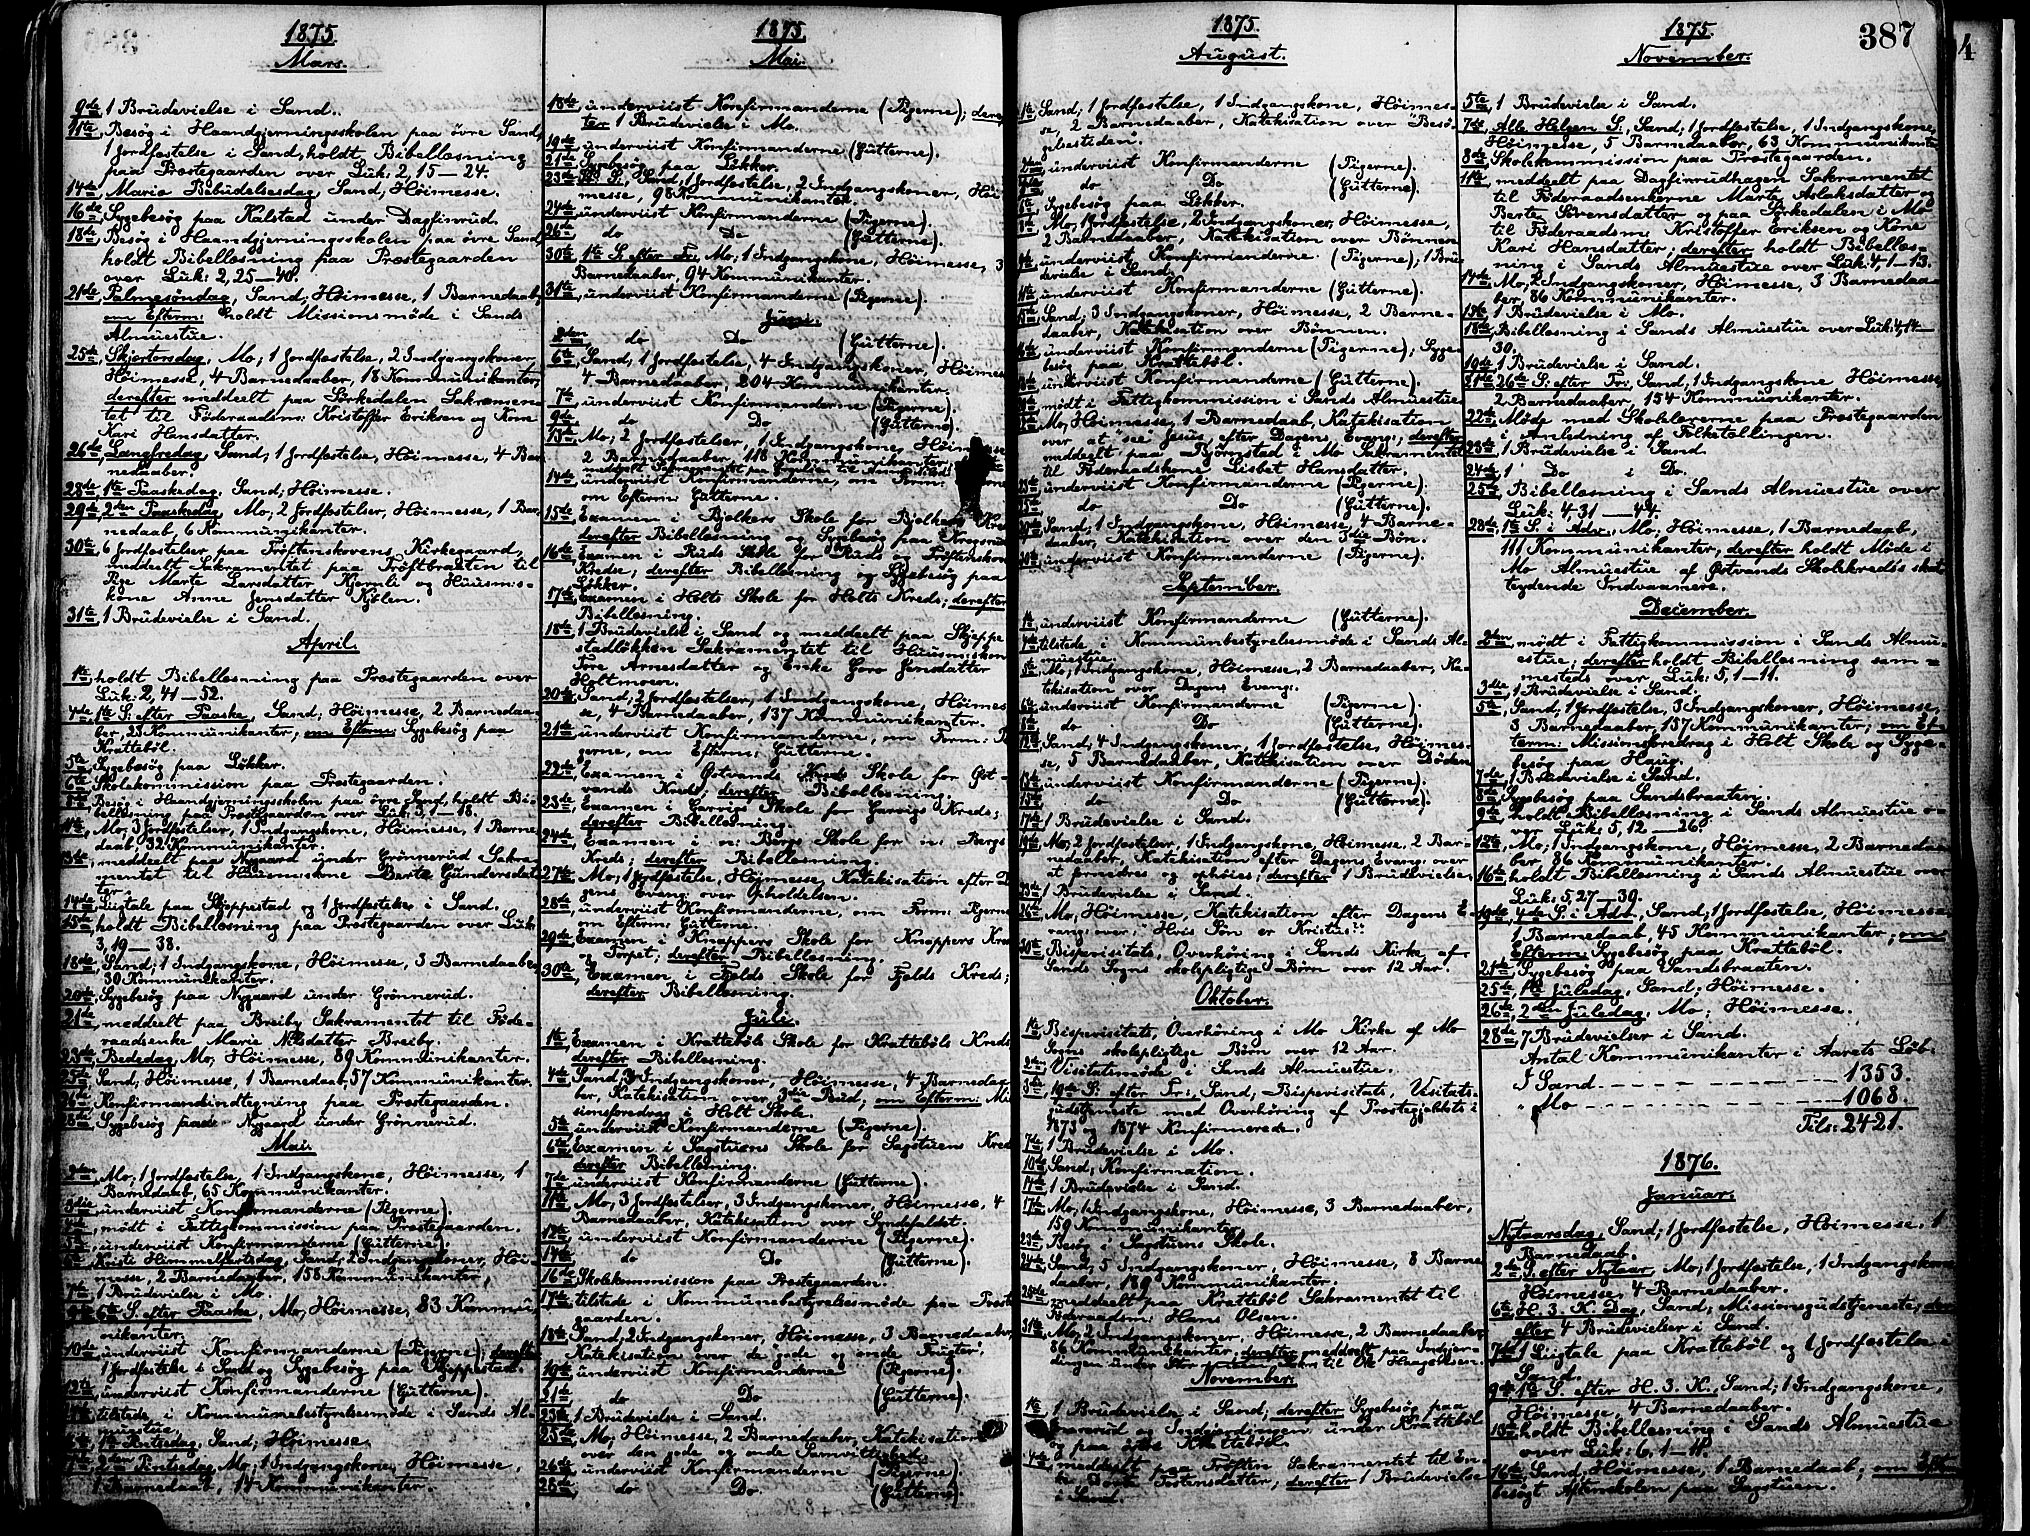 387
1875.
Mars.
9de, 1 Brüdevielse i Sand.
11te, Besøg i Haandgjerningsskolen paa øvre Sand,
1 Jordfæstelse i Sand, holdt Bibellæsning
paa Præstegaarden over Luk: 2, 15—24.
14de, Mariæ Bebudelsesdag, Sand, Høimesse.
16de, Sygebesøg paa Kalstad under Dagfinrud.
18de, Besøg i Haandgjerningsskolen paa øvre Sand,
holdt Bibellæsning paa Præstegaarden
over Luk: 2, 25—40.
21de, Palmesøndag, Sand, Høimesse, 1 Barnedaab,
om Efterm: holdt Missionsmøde i Sands
Almuestue.
25de, Skjærtorsdag, Mo; 1 Jordfæstelse, 2 Indgangskoner,
Høimesse, 4 Barnedaaber, 18 Kommunikanter,
derefter meddeelt paa Sørkedalen Sakramen-
tet til Føderaadsm: Kristoffer Eriksen og Kone
Kari Hansdatter.
26de, Langfredag, Sand; 1 Jordfæstelse, Høimesse, 4 Bar-
nedaaber.
28de, 1ste Paaskedag, Sand; Høimesse.
29de, 2den Paaskedag, Mo; 2 Jordfæstelser, Høimesse, 1 Bar-
nedaab, 6 Kommunikanter.
30te, 6 Jordfæstelser paa Trøftenskovens Kirkegaard,
meddelt Sakramentet paa Trøftbraaten til
Pge Marte Larsdatter Kjernli og Huusm:s-
kone Anne Jensdatter Kjølen.
31te, 1 Brüdevielse i Sand.
April.
1ste, holdt Bibellæsning paa Præstegaarden over
Luk: 2, 41—52.
4de, 1ste S: efter Paaske, Sand; Høimesse, 2 Barnedaa-
ber, 23 Kommunikanter; om Efterm: Sygebesøg paa
Krattebøl.
5te, Sygebesøg paa Løkker.
6te, Skolekommission paa Præstegaarden.
8de, Besøg i Haandgjerningsskolen paa øvre Sand, holdt Bi-
bellæsning paa Præstegaarden over Luk: 3, 1—18.
11te, Mo, 3 Jordfæstelser, 1 Indgangskone, Høimesse, 1 Barne-
daab, 32 Kommunikanter.
13de, meddeelt paa Nygaard under Grønnerud Sakra-
mentet til Huusm:skone Berte Gundersdat-
ter.
14de, Liigtale paa Skjeppestad og 1 Jordfæstelse i Sand.
15de, holdt Bibellæsning paa Præstegaarden over Luk:
3, 19—38.
18de, Sand; 1 Indgangskone, Høimesse, 3 Barnedaaber,
30 Kommunikanter.
20de, Sygebesøg paa Nygaard under Grønnerud.
21de, meddeelt paa Breiby Sakramentet til Føde-
raadsenke Marie Nilsdatter Breiby.
23de, Bededag, Mo; Høimesse, 89 Kommunikanter.
25de, Sand; Høimesse, 1 Barnedaab, 57 Kommunikanter.
26de, Konfirmandindtegning paa Præstegaarden.
28de, Sygebesøg paa Nygaard under Grønnerud.
Mai.
2den, Mo, 1 Jordfæstelse, 1 Indgangskone, Høimesse, 1
Barnedaab, 65 Kommunikanter.
3die, underviist Konfirmanderne (Pigerne).
4de, mødt i Fattigkommission paa Præstegaarden.
5te, underviist Konfirmanderne (Gutterne).
6te, Kristi Himmelfartsdag, Sand; 2 Indgangskoner, Høi-
messe, 2 Barnedaaber, 158 Kommunikanter,
7de, 1 Brüdevielse i Mo.
9de, 6te S: efter Paaske, Mo; Høimesse, 83 Kommu-
nikanter.
10de, underviist Konfirmanderne (Pigerne); derefter
1 Jordfæstelse i Sand og Sygebesøg paa Skjeppestad.
12te, underviist Konfirmanderne (Gutterne).
tilstede i Kommunebestyrelsesmøde i Sands Al-
muestue.
16de, 1ste Pintsedag, Sand; Høimesse.
17de, 2den Pintsedag, Mo, 1 Indgangskone, Høimesse,
1 Barnedaab, 14 Kommunikanter.
1875.
Mai.
18de, underviist Konfirmanderne (Pigerne); deref-
ter 1 Brüdevielse i Mo.
19de, underviist Konfirmanderne (Gutterne).
21de, Sygebesøg paa Løkker.
23de, Tr: S:, Sand, 1 Jordfæstelse, 2 Indgangskoner, Høi-
messe, 98 Kommunikanter.
24de, underviist Konfirmanderne (Pigerne).
26de, do Do (Gutterne).
30te, 1ste S: efter Tr:, Mo; 1 Indgangskone, Høimesse, 3
Barnedaaber, 94 Kommunikanter.
31te, underviist Konfirmanderne (Pigerne).
Juni.
2den, do Do (Gutterne).
6te, Sand, 1 Jordfæstelse, 4 Indgangskoner, Høimesse
4 Barnedaaber, 204 Kommunikanter.
7de, underviist Konfirmanderne (Pigerne).
9de, do Do (Gutterne).
13de, Mo; 2 Jordfæstelser, 1 Indgangskone, Høimesse
2 Barnedaaber, 118 Kommunikanter,
14de, underviist Konfirmanderne, om Form:
om Efterm: Gutterne.
15de, Examen i Bjølkers Skole for Bjølkers Kreds
derefter Bibellæsning og Sygebesøg paa Krogsrud
16de, Examen i Ruds Skole for Ruds og Trøftenskov
Kredse, derefter Bibellæsning og Sygebesøg paa
Løkker.
17de, Examen i Holts Skole for Holts Kreds; derefter
Bibellæsning.
18de, 1 Brüdevielse i Sand og meddeelt paa Skjeppe-
stadløkken Sakramentet til Huusm:skone
Tore Arnesdatter og Enke Goro Jensdatter
Holtmoen.
20de, Sand; 2 Jordfæstelser, 1 Indgangskone, Høimes-
se, 4 Barnedaaber, 137 Kommunikanter.
21de, underviist Konfirmanderne, om Form: Pi-
gerne, om Efterm: Gutterne.
22de, Examen i Østvands Kreds Skole for Øst-
vands Kreds; derefter Bibellæsning.
23de, Examen i Garvigs Skole for Garvigs Kreds;
derefter Bibellæsning.
24de, Examen i n: Bergs Skole for n: Bergs
Kreds; derefter Bibellæsning.
27de, Mo, 1 Jordfæstelse, Høimesse, Katekisation efter Da-
gens Evang: over Opholdelsen.
28de, underviist Konfirmanderne, om Form: Pigerne
om Efterm: Gutterne.
29de, Examen i Knappers Skole for Knappers Kreds
og Torpet, derefter Bibellæsning.
30te, Examen i Fjelds Skole for Fjelds Kreds;
derefter Bibellæsning.
Juli.
1ste, Examen i Krattebøls Skole for Krattebøls Kreds
derefter Bibellæsning.
4de, Sand, 3 Indgangskoner, Høimesse, 4 Barnedaa-
ber, Katekisation over 3die Bud; om Efterm: Mis-
sionsforedrag i Holt Skole.
5te, underviist Konfirmanderne (Pigerne).
6te, Examen i Sagstuens Skole for Sagstuen Kreds
derefter Bibellæsning.
7de, underviist Konfirmanderne (Gutterne).
11te, Mo, 3 Jordfæstelser, 3 Indgangskoner, Høimesse, 4
Barnedaaber, Katekisation over Syndefaldet.
12te, underviist Konfirmanderne (Pigerne).
14de, do Do (Gutterne).
16de, Skolekommission paa Præstegaarden.
17de, tilstede i Kommunebestyrelsesmøde paa Præste-
gaarden.
18de, Sand, 2 Indgangskoner, Høimesse, 3 Barnedaaber,
Katekisation over de gode og onde Frugter,
19de, underviist Konfirmanderne (Pigerne).
21de, do Do (Gutterne).
23de, 1 Brüdevielse i Sand.
25de, Mo, Høimesse, 2 Barnedaaber, Katekisation
over den gode og onde Samvittighed.
26de, underviist Konfirmanderne (Pigerne).
28de, do Do (Gutterne).
1875.
August.
1ste, Sand; 1 Jordfæstelse, 1 Indgangskone, Høimes-
se, 2 Barnedaaber, Katekisation over "Besø-
gelsestiden".
2den, underviist Konfirmanderne (Pigerne).
4de, do Do (Gutterne).
Sygebesøg paa Løkker.
8de, Mo, 1 Jordfæstelse, 2 Indgangskoner, Høimesse,
2 Barnedaaber, Katekisation over Bønnen
9de, underviist Konfirmanderne (Pigerne); 1 Brü-
devielse i Sand.
11te, underviist Konfirmanderne (Gutterne).
15de, Sand; 3 Indgangskoner, Høimesse, 2 Barne-
daaber, Katekisation over Bønnen.
16de, underviist Konfirmanderne (Pigerne); Syge-
besøg paa Krattebøl.
18de, underviist Konfirmanderne (Gutterne).
mødt i Fattigkommission i Sands Almuestue
22de, Mo, Høimesse, 1 Barnedaab, Katekisation
over at "see Jesus, efter Dagens Evang:; derefter
meddeelt paa Bjørnstad i Mo Sakramentet
til Føderaadskone Lisbet Hansdatter.
23de, underviist Konfirmanderne (Pigerne).
25de, do Do (Gutterne).
29de, Sand; 1 Indgangskone, Høimesse, 4 Barne-
daaber, Katekisation over den 3die Bøn.
30te, underviist Konfirmanderne (Pigerne).
September.
1ste, underviist Konfirmanderne (Gutterne).
4de, tilstede i Kommunebestyrelsesmøde i Sands Al-
muestue.
5te, Mo; 1 Indgangskone, Høimesse, 2 Barnedaaber, Ka-
tekisation over Dagens Evang:.
6te, underviist Konfirmanderne (Pigerne).
8de, do Do (Gutterne).
12te, Sand; 4 Indgangskoner, 1 Jordfæstelse, Høimes-
se, 5 Barnedaaber, Katekisation over Døden
13de, underviist Konfirmanderne (Pigerne).
15de, do Do (Gutterne).
17de, 1 Brüdevielse i Sand.
19de, Mo, 2 Jordfæstelser, 1 Indgangskone, Høimesse, 2 Bar-
nedaaber, Katekisation efter Dagens Evang: over
at fornedres og ophøies; derefter 1 Brüdevielse,
1 Brüdevielse i Sand.
26de, Mo, Høimesse, Katekisation efter Dagens E-
vang: over "Hvis Søn er Kristus?".
30te, Bispevisitats, Overhøring i Sands Kirke af
Sands Sogns skolepligtige Børn over 12 Aar.
Oktober.
1ste, Bispevisitats, Overhøring i Mo Kirke af Mo
Sogns skolepligtige Børn over 12 Aar.
2den, Visitatsmøde i Sands Almuestue.
3die, 19de S: efter Tr:, Sand, Bispevisitats, Visitats-
gudstjeneste med Overhøring af Præstegjeldets i
1873 og 1874 Konfirmerede.
7de, 1 Brüdevielse i Mo.
10de, Sand, Konfirmation.
14de, 1 Brüdevielse i Sand.
17de, Mo, 1 Indgangskone, Høimesse, 3 Barnedaaber,
159 Kommunikanter.
23de, Besøg i Sagstuens Skole.
24de, Sand, 5 Indgangskoner, Høimesse, 8 Barne-
daaber, 189 Kommunikanter.
28de, meddeelt paa Krattebøl Sakramentet til
Føderaadsm: Hans Olsen.
31te, Mo, 2 Indgangskoner, Høimesse, 2 Barnedaaber,
86 Kommunikanter; derefter meddeelt paa Indgjer-
dingen under Stor til Ole Haagensen.
November.
1ste, 1 Brüdevielse i Sand; derefter Sygebesøg paa
og Indgjerdingen under Krattebøl
og paa øvre Krattebøl.
4de, meddeelt paa Trøften Sakramentet til En-
ke Dorte Torstensdatter, derefter 1 Brüdevielse
i Sand.
1875.
November.
5te, 1 Brüdevielse i Sand.
7de, Alle Helgen S:, Sand; 1 Jordfæstelse, 1 Indgangskone,
Høimesse, 5 Barnedaaber, 63 Kommunikanter
8de, Skolekommission paa Præstegaarden.
11te, meddeelt paa Dagfinrudhagen Sakramentet
til Føderaadsenkerne Marte Aslaksdatter og
Berte Sørensdatter og paa Sørkedalen i Mo
til Føderaadsm: Kristoffer Eriksen og Kone
Kari Hansdatter; derefter holdt Bibellæs-
ning i Sands Almuestue over Luk: 4, 1—13.
14de, Mo, 2 Indgangskoner, Høimesse, 3 Barnedaa-
ber, 86 Kommunikanter.
15de, 1 Brüdevielse i Mo.
18de, Bibellæsning i Sands Almuestue over Luk: 4, 14—
30.
19de, 1 Brüdevielse i Sand.
21de, 26de S: efter Tr:, Sand, 1 Indgangskone, Høimesse,
2 Barnedaaber, 154 Kommunikanter.
22de, Møde med Skolelærerne paa Præstegaarden
i Anledning af Folketællingen.
23de, 1 Brüdevielse i Sand.
24de, 1 Do i Do.
25de, Bibellæsning i Sands Almuestue over
Luk: 4, 31—44.
28de, 1ste S: i Adv:, Mo, Høimesse, 1 Barnedaab,
111 Kommunikanter, derefter holdt Møde i
Mo Almuestue af Østvands Skolekreds's skat-
teydende Indvaanere.
December.
2den, mødt i Fattigkommission i Sands Almu-
estue; derefter holdt Bibellæsning sam-
mesteds over Luk: 5, 1—11.
3die, 1 Brüdevielse i Sand.
5te, Sand, 1 Jordfæstelse, 3 Indgangskoner, Høimesse,
3 Barnedaaber, 157 Kommunikanter; om Ef-
term: Missionsforedrag i Holt Skole og Syge-
besøg paa Haug.
7de, 1 Brüdevielse i Sand.
8de, Sygebesøg paa Sandsbraaten.
9de, holdt Bibellæsning i Sands Almuestue o-
ver Luk: 5, 12—26.
12te, Mo; 1 Indgangskone, Høimesse, 2 Barnedaa-
ber, 86 Kommunikanter.
16de, holdt Bibellæsning i Sands Almuestue over
Luk: 5, 27—39.
19de, 4de S: i Adv:, Sand; 1 Jordfæstelse, Høimesse
1 Barnedaab, 45 Kommunikanter; om
Efterm: Sygebesøg paa Krattebøl.
21de, Sygebesøg paa Sandsbraaten.
25de, 1ste Juledag, Sand; Høimesse.
26de, 2den Juledag, Mo; Høimesse.
28de, 7 Brüdevielser i Sand.
Antal Kommunikanter i Aarets Løb:
I Sand - - - - - 1353.
" Mo - - - - - 1068.
Tils: 2421.
1876.
Januar.
Nytaarsdag, Sand; 1 Jordfæstelse, Høimesse, 1
Barnedaab.
2den, S. efter Nytaar, Mo; 1 Jordfæstelse, 1 Indgangskone
Høimesse, 4 Barnedaaber.
6te, H. 3. K. Dag, Sand; Missionsgudstjeneste; der-
efter 4 Brüdevielser i Sand.
7de, 1 Liigtale paa Krattebøl og 1 Jordfæstelse i
Sand.
9de, 1ste S. efter H. 3. K., Sand; 1 Indgangskone,
Høimesse, 4 Barnedaaber.
holdt Bibellæsning i Sands Almuestue
over Luk: 6, 1—11.
16de, Sand; Høimesse, 1 Barnedaab; om Eft:
besøgt Aftenskolen paa Sagstuen.